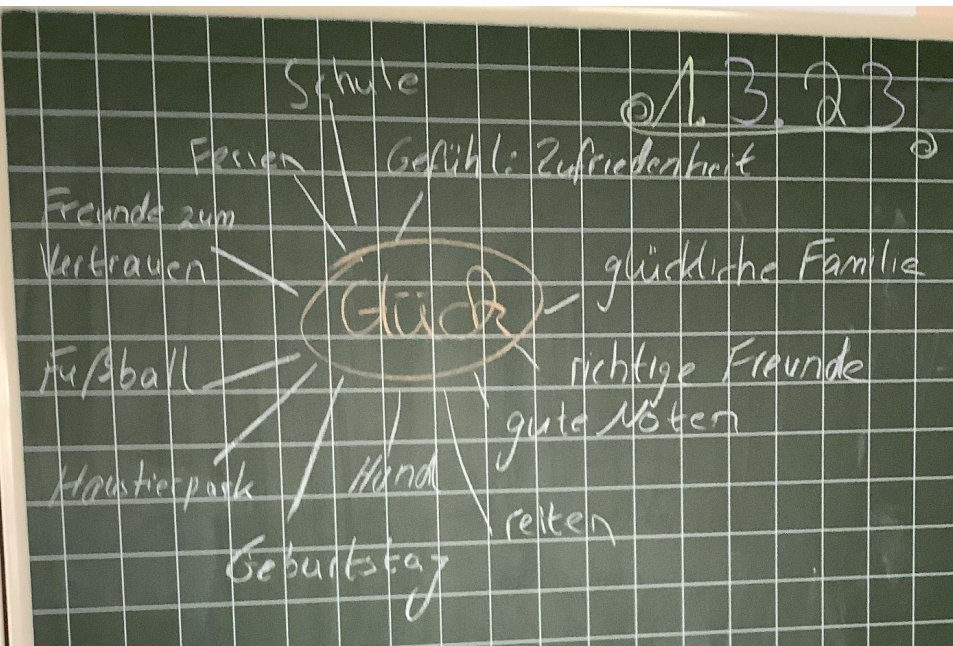 Schule
1. 3. 23
Ferien
Gefühl: Zufriedenheit
Freunde zum
Vertrauen
glückliche Familie
Glück
Fußball
richtige Freunde
gute Noten
Haustierpark
Hund
reiten
Geburtstag